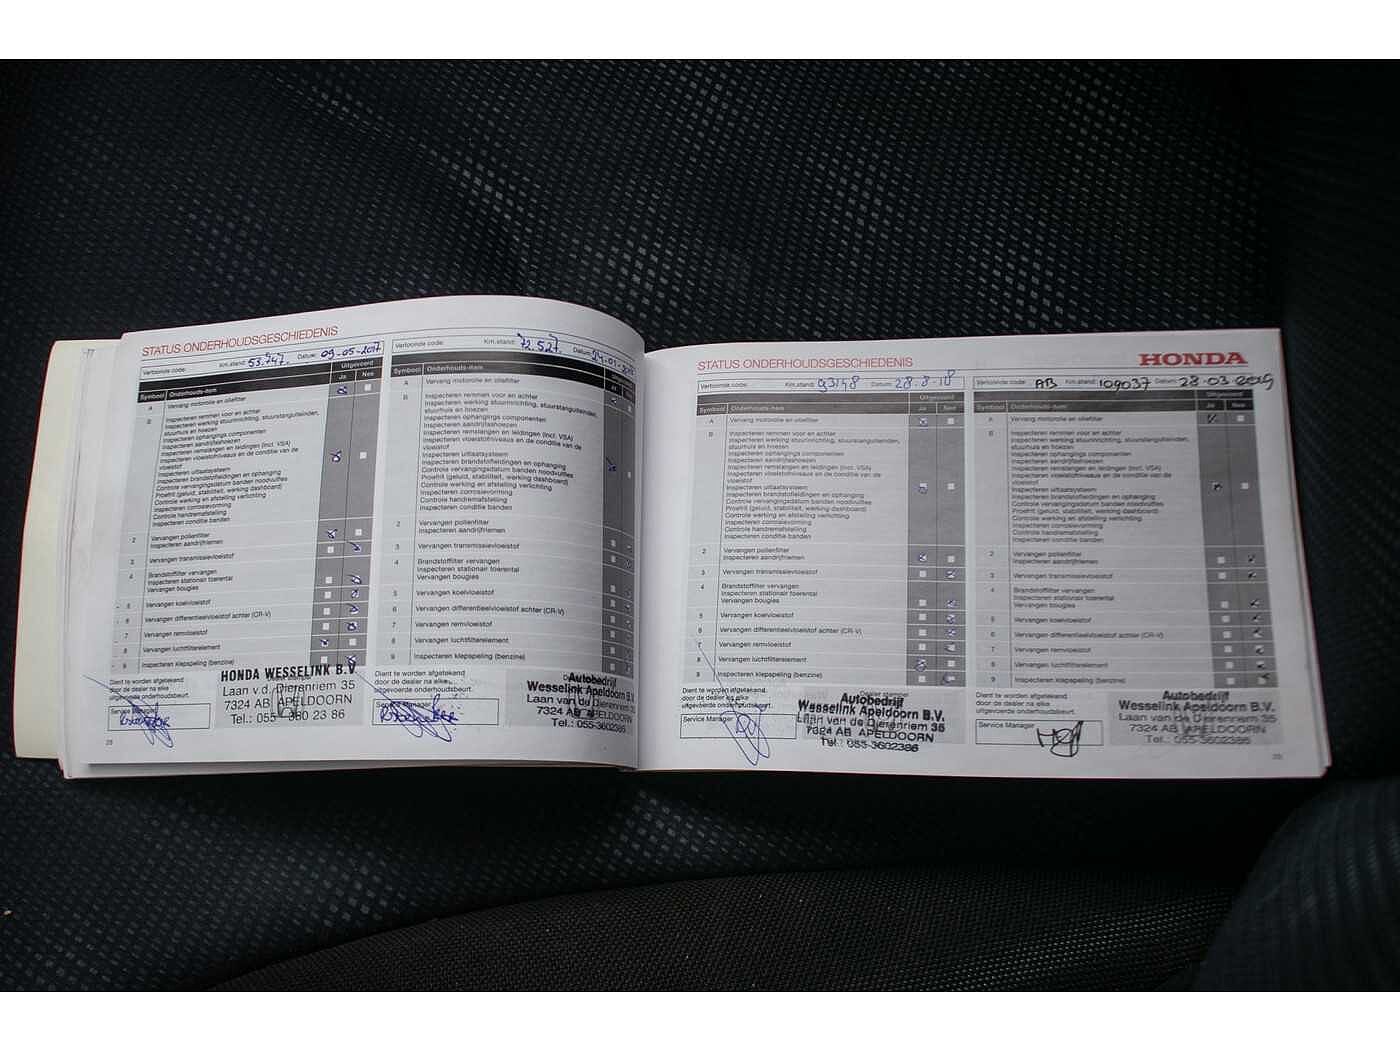 STATUS ONDERHOUDSGESCHIEDENIS
Vertoonde code: Km.stand: 53.747. Datum: 09-05-2017
Uitgevoerd
Symbool Onderhouds-item Ja Nee
A Vervang motorolie en oliefilter
B Inspecteren remmen voor en achter
Inspecteren werking stuurinrichting, stuurstanguiteinden,
stuurhuis en hoezen
Inspecteren ophangings componenten
Inspecteren aandrijfashoezen
Inspecteren remslangen en leidingen (incl. VSA)
Inspecteren vloeistofniveaus en de conditie van de
vloeistof
Inspecteren uitlaatsysteem
Inspecteren brandstofleidingen en ophanging
Controle vervangingsdatum banden noodvulfles
Proefrit (geluid, stabiliteit, werking dashboard)
Controle werking en afstelling verlichting
Inspecteren corrosievorming
Controle handremafstelling
Inspecteren conditie banden
2 Vervangen pollenfilter
Inspecteren aandrijfriemen
3 Vervangen transmissievloeistof
4 Brandstoffilter vervangen
Inspecteren stationair toerental
Vervangen bougies
5 Vervangen koelvloeistof
6 Vervangen differentieelvloeistof achter (CR-V)
7 Vervangen remvloeistof
8 Vervangen luchtfilterelement
9 Inspecteren klepspeling (benzine)
Dient te worden afgetekend
door de dealer na elke
uitgevoerde onderhoudsbeurt.
Service Manager
HONDA WESSELINK B.V
Laan v.d. Dierenriem 35
7324 AB APELDOORN
Tel.: 055 380 23 86
28
Vertoonde code: Km.stand: 72.527. Datum: 24-01-
Symbool Onderhouds-item
A Vervang motorolie en oliefilter
B Inspecteren remmen voor en achter
Inspecteren werking stuurinrichting, stuurstanguiteinden,
stuurhuis en hoezen
Inspecteren ophangings componenten
Inspecteren aandrijfashoezen
Inspecteren remslangen en leidingen (incl. VSA)
Inspecteren vloeistofniveaus en de conditie van de
vloeistof
Inspecteren uitlaatsysteem
Inspecteren brandstofleidingen en ophanging
Controle vervangingsdatum banden noodvulfles
Proefrit (geluid, stabiliteit, werking dashboard)
Controle werking en afstelling verlichting
Inspecteren corrosievorming
Controle handremafstelling
Inspecteren conditie banden
2 Vervangen pollenfilter
Inspecteren aandrijfriemen
3 Vervangen transmissievloeistof
4 Brandstoffilter vervangen
Inspecteren stationair toerental
Vervangen bougies
5 Vervangen koelvloeistof
6 Vervangen differentieelvloeistof achter (CR-V)
7 Vervangen remvloeistof
8 Vervangen luchtfilterelement
9 Inspecteren klepspeling (benzine)
Dient te worden afgetekend
door de dealer na elke
uitgevoerde onderhoudsbeurt.
Service Manager
Autobedrijf
Wesselink Apeldoorn B.V.
Laan van de Dierenriem
7324 AB APELDOORN
Tel.: 055-3602386
STATUS ONDERHOUDSGESCHIEDENIS
HONDA
Vertoonde code: Km.stand: 93148 Datum: 28-8-18
Uitgevoerd
Symbool Onderhouds-item Ja Nee
A Vervang motorolie en oliefilter
B Inspecteren remmen voor en achter
Inspecteren werking stuurinrichting, stuurstanguiteinden,
stuurhuis en hoezen
Inspecteren ophangings componenten
Inspecteren aandrijfashoezen
Inspecteren remslangen en leidingen (incl. VSA)
Inspecteren vloeistofniveaus en de conditie van de
vloeistof
Inspecteren uitlaatsysteem
Inspecteren brandstofleidingen en ophanging
Controle vervangingsdatum banden noodvulfles
Proefrit (geluid, stabiliteit, werking dashboard)
Controle werking en afstelling verlichting
Inspecteren corrosievorming
Controle handremafstelling
Inspecteren conditie banden
2 Vervangen pollenfilter
Inspecteren aandrijfriemen
3 Vervangen transmissievloeistof
4 Brandstoffilter vervangen
Inspecteren stationair toerental
Vervangen bougies
5 Vervangen koelvloeistof
6 Vervangen differentieelvloeistof achter (CR-V)
7 Vervangen remvloeistof
8 Vervangen luchtfilterelement
9 Inspecteren klepspeling (benzine)
Dient te worden afgetekend
door de dealer na elke
uitgevoerde onderhoudsbeurt.
Service Manager
Dealer stempel
Autobedrijf
Wesselink Apeldoorn B.V.
Laan van de Dierenriem 35
7324 AB APELDOORN
Tel: 055-3602386
Vertoonde code: AB Km.stand: 109037 Datum: 28-03-2019
Uitgevoerd
Symbool Onderhouds-item Ja Nee
A Vervang motorolie en oliefilter
B Inspecteren remmen voor en achter
Inspecteren werking stuurinrichting, stuurstanguiteinden,
stuurhuis en hoezen
Inspecteren ophangings componenten
Inspecteren aandrijfashoezen
Inspecteren remslangen en leidingen (incl. VSA)
Inspecteren vloeistofniveaus en de conditie van de
vloeistof
Inspecteren uitlaatsysteem
Inspecteren brandstofleidingen en ophanging
Controle vervangingsdatum banden noodvulfles
Proefrit (geluid, stabiliteit, werking dashboard)
Controle werking en afstelling verlichting
Inspecteren corrosievorming
Controle handremafstelling
Inspecteren conditie banden
2 Vervangen pollenfilter
Inspecteren aandrijfriemen
3 Vervangen transmissievloeistof
4 Brandstoffilter vervangen
Inspecteren stationair toerental
Vervangen bougies
5 Vervangen koelvloeistof
6 Vervangen differentieelvloeistof achter (CR-V)
7 Vervangen remvloeistof
8 Vervangen luchtfilterelement
9 Inspecteren klepspeling (benzine)
Dient te worden afgetekend
door de dealer na elke
uitgevoerde onderhoudsbeurt.
Service Manager
Autobedrijf
Wesselink Apeldoorn B.V.
Laan van de Dierenriem 35
7324 AB APELDOORN
Tel.: 055-3602386